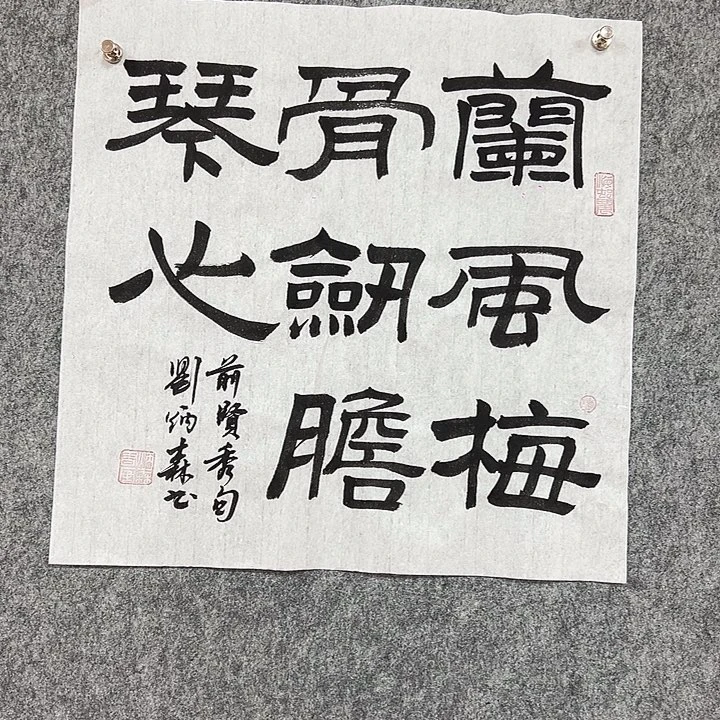 蘭風梅
骨劒膽
琴心
前賢秀句
劉炳森書